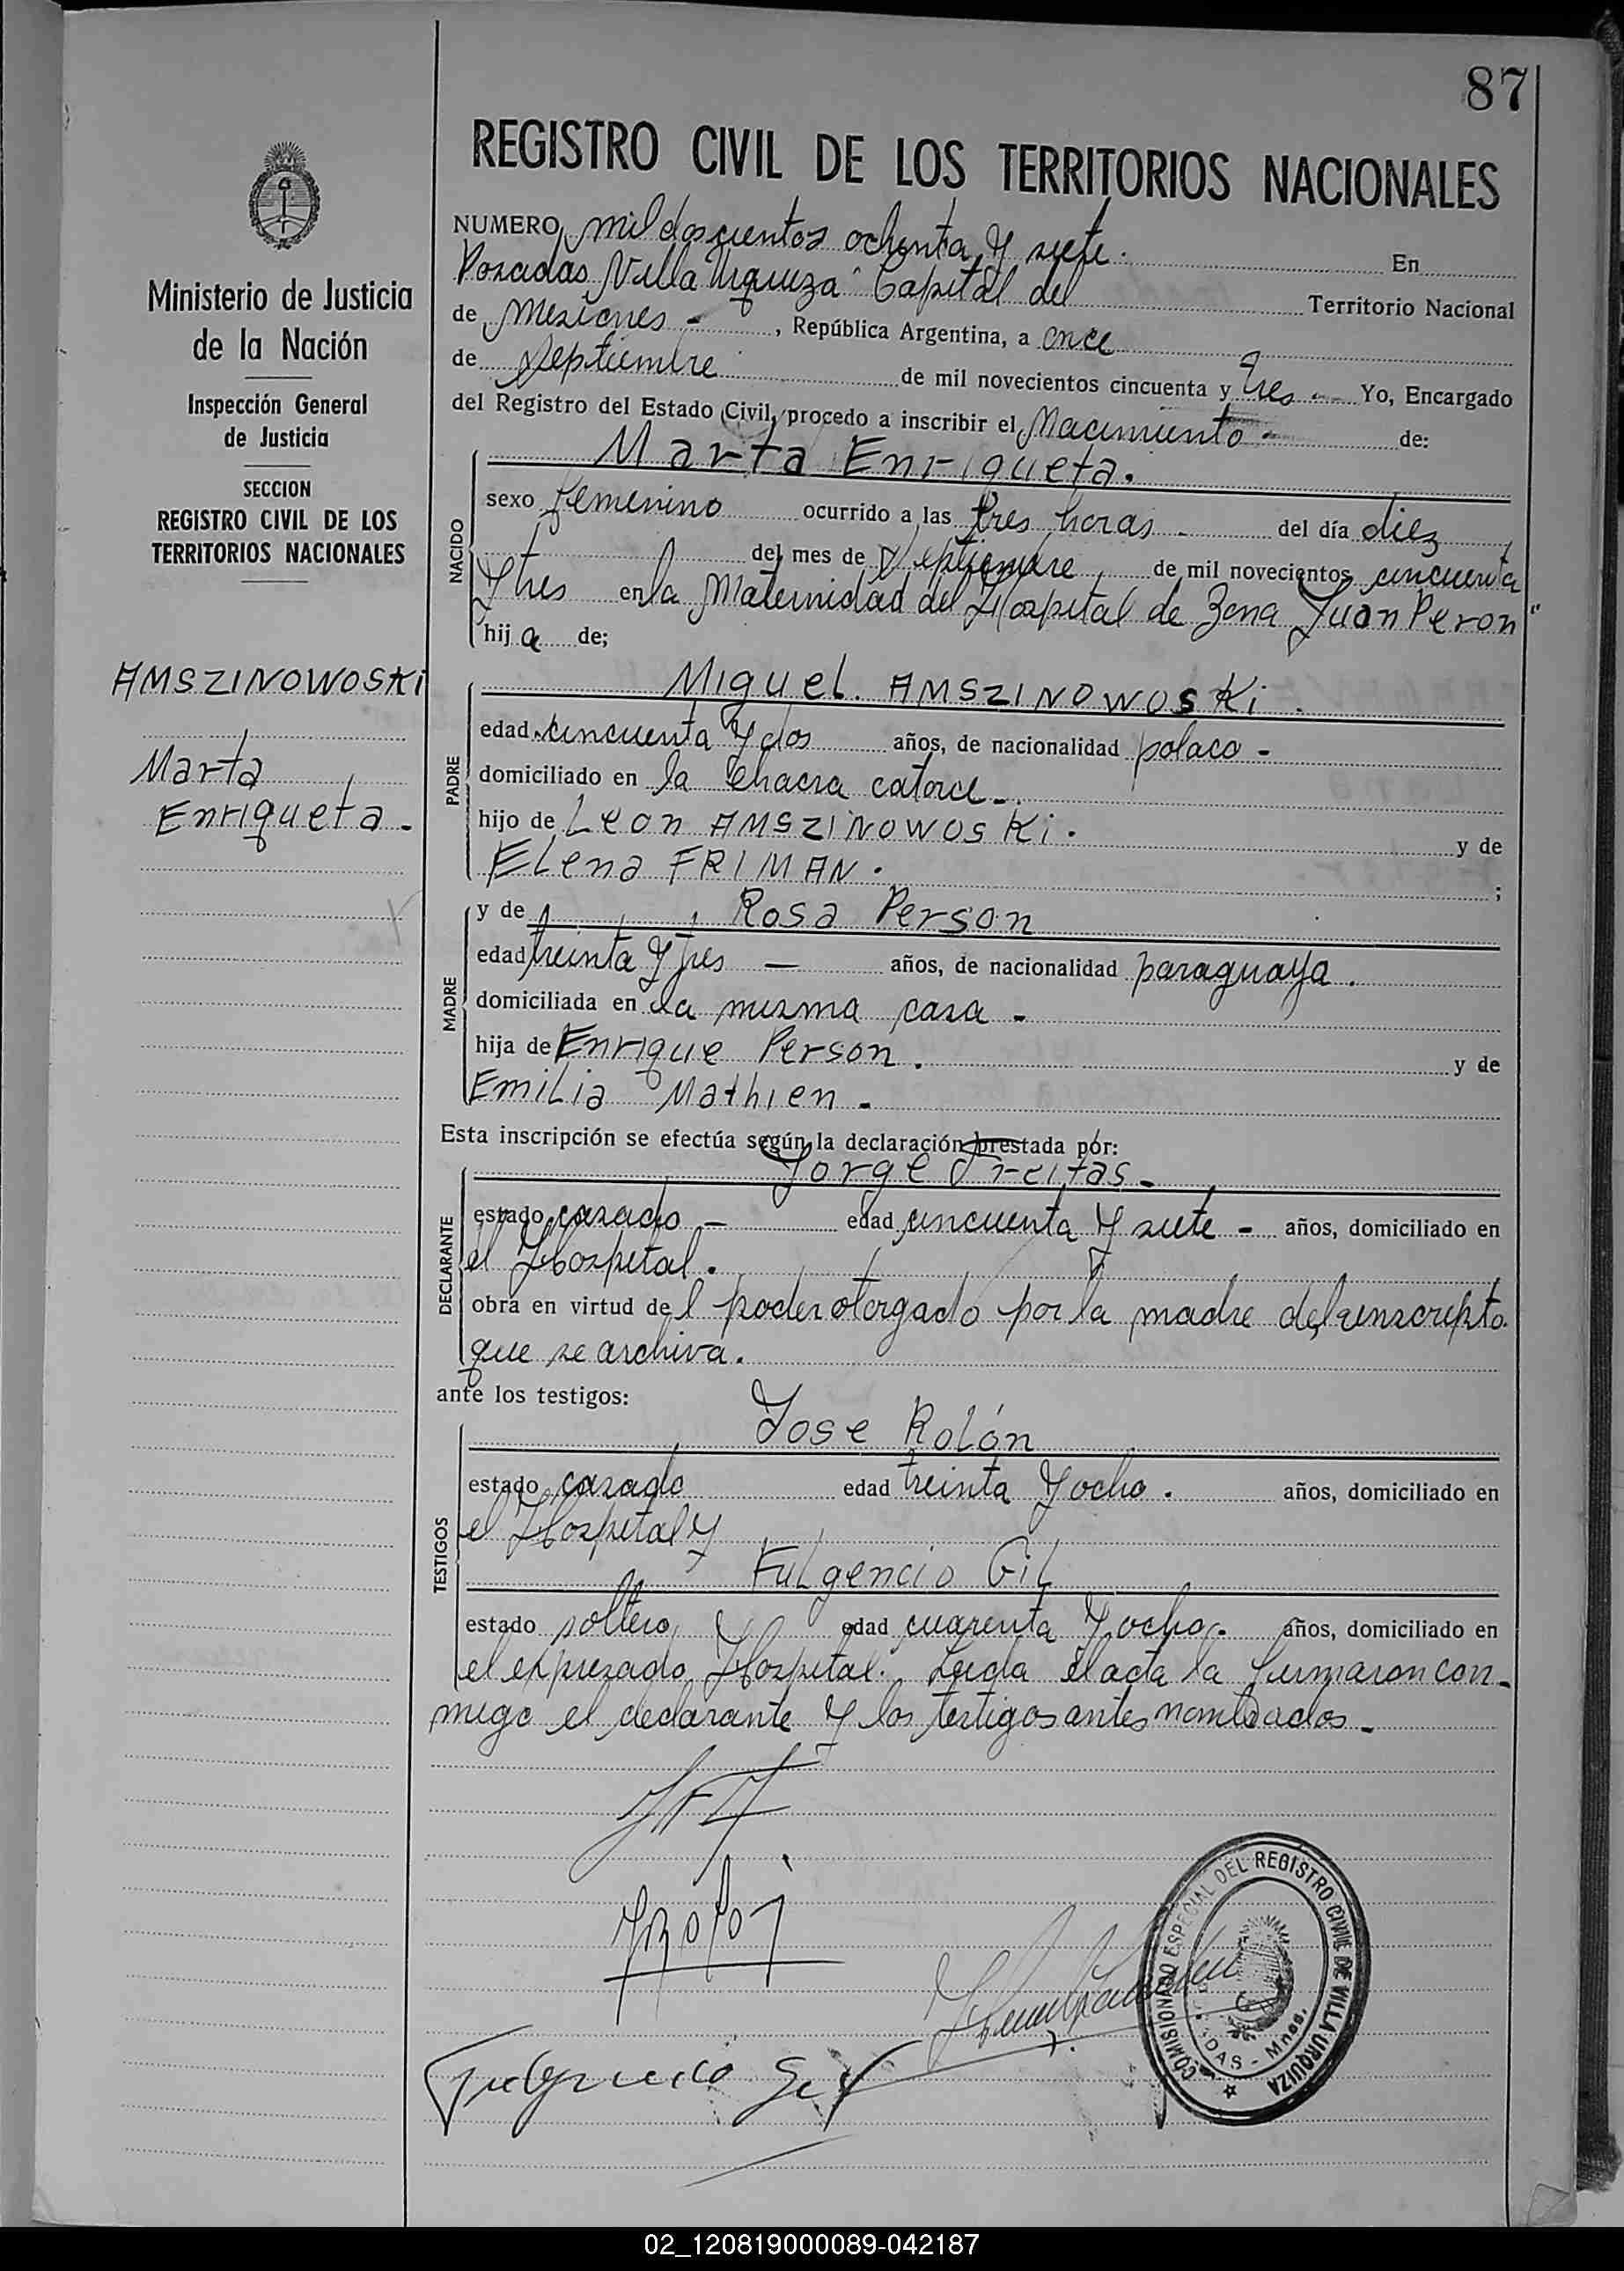 87
REGISTRO CIVIL DE LOS TERRITORIOS NACIONALES
Ministerio de Justicia
de la Nación
Inspección General
de Justicia
SECCION
REGISTRO CIVIL DE LOS
TERRITORIOS NACIONALES
AMSZINOWOSKi
Marta
Enriqueta.-
NUMERO mil doscientos ochenta y siete. En
Posadas, Villa Urquiza Capital del Territorio Nacional
de Misiones - , República Argentina, a once
de Septiembre de mil novecientos cincuenta y tres - Yo, Encargado
del Registro del Estado Civil, procedo a inscribir el Nacimiento - de:
Marta Enriqueta.
NACIDO
sexo femenino ocurrido a las tres horas - del día diez
del mes de Septiembre de mil novecientos cincuenta
y tres en la Maternidad del Hospital de Zona Juan Peron"
hija de;
Miguel. AMSZINOWOSKi.
PADRE
edad cincuenta y dos años, de nacionalidad polaco -
domiciliado en la chacra catorce -.
hijo de Leon AMSZINOWOSKi. y de
Elena FRIMAN. ;
y de Rosa Person
MADRE
edad treinta y tres — años, de nacionalidad paraguaya.
domiciliada en la misma casa -
hija de Enrique Person. y de
Emilia Mathien -
Esta inscripción se efectúa según la declaración prestada por:
Jorge Freitas -
DECLARANTE
estado casado - edad cincuenta y siete - años, domiciliado en
el Hospital.
obra en virtud del poder otorgado por la madre del inscripto
que se archiva.
ante los testigos:
Jose Rolón
TESTIGOS
estado casado edad treinta y ocho. años, domiciliado en
el Hospital y
Fulgencio Gil
estado soltero, edad cuarenta y ocho. años, domiciliado en
el expresado Hospital. Leida el acta la firmaron con-
migo el declarante y los testigos antes nombrados -
Fulgencio Gil
COMISIONADO ESPECIAL DEL REGISTRO CIVIL DE VILLA URQUIZA
DAS - Mnes.
02_120819000089-042187